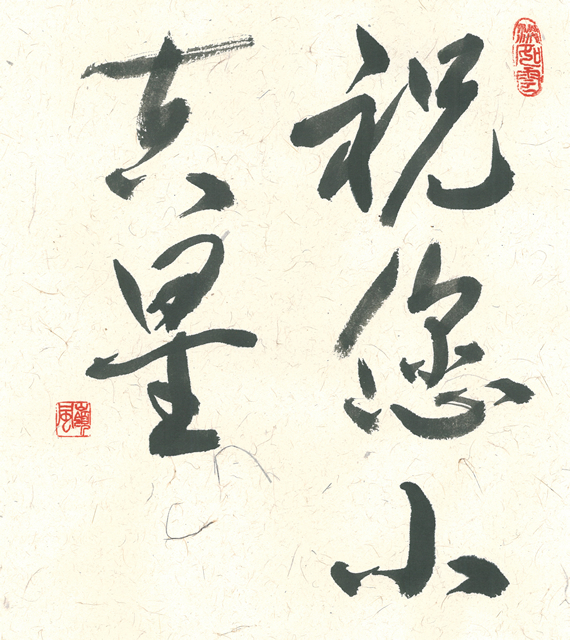 祝您小
真星